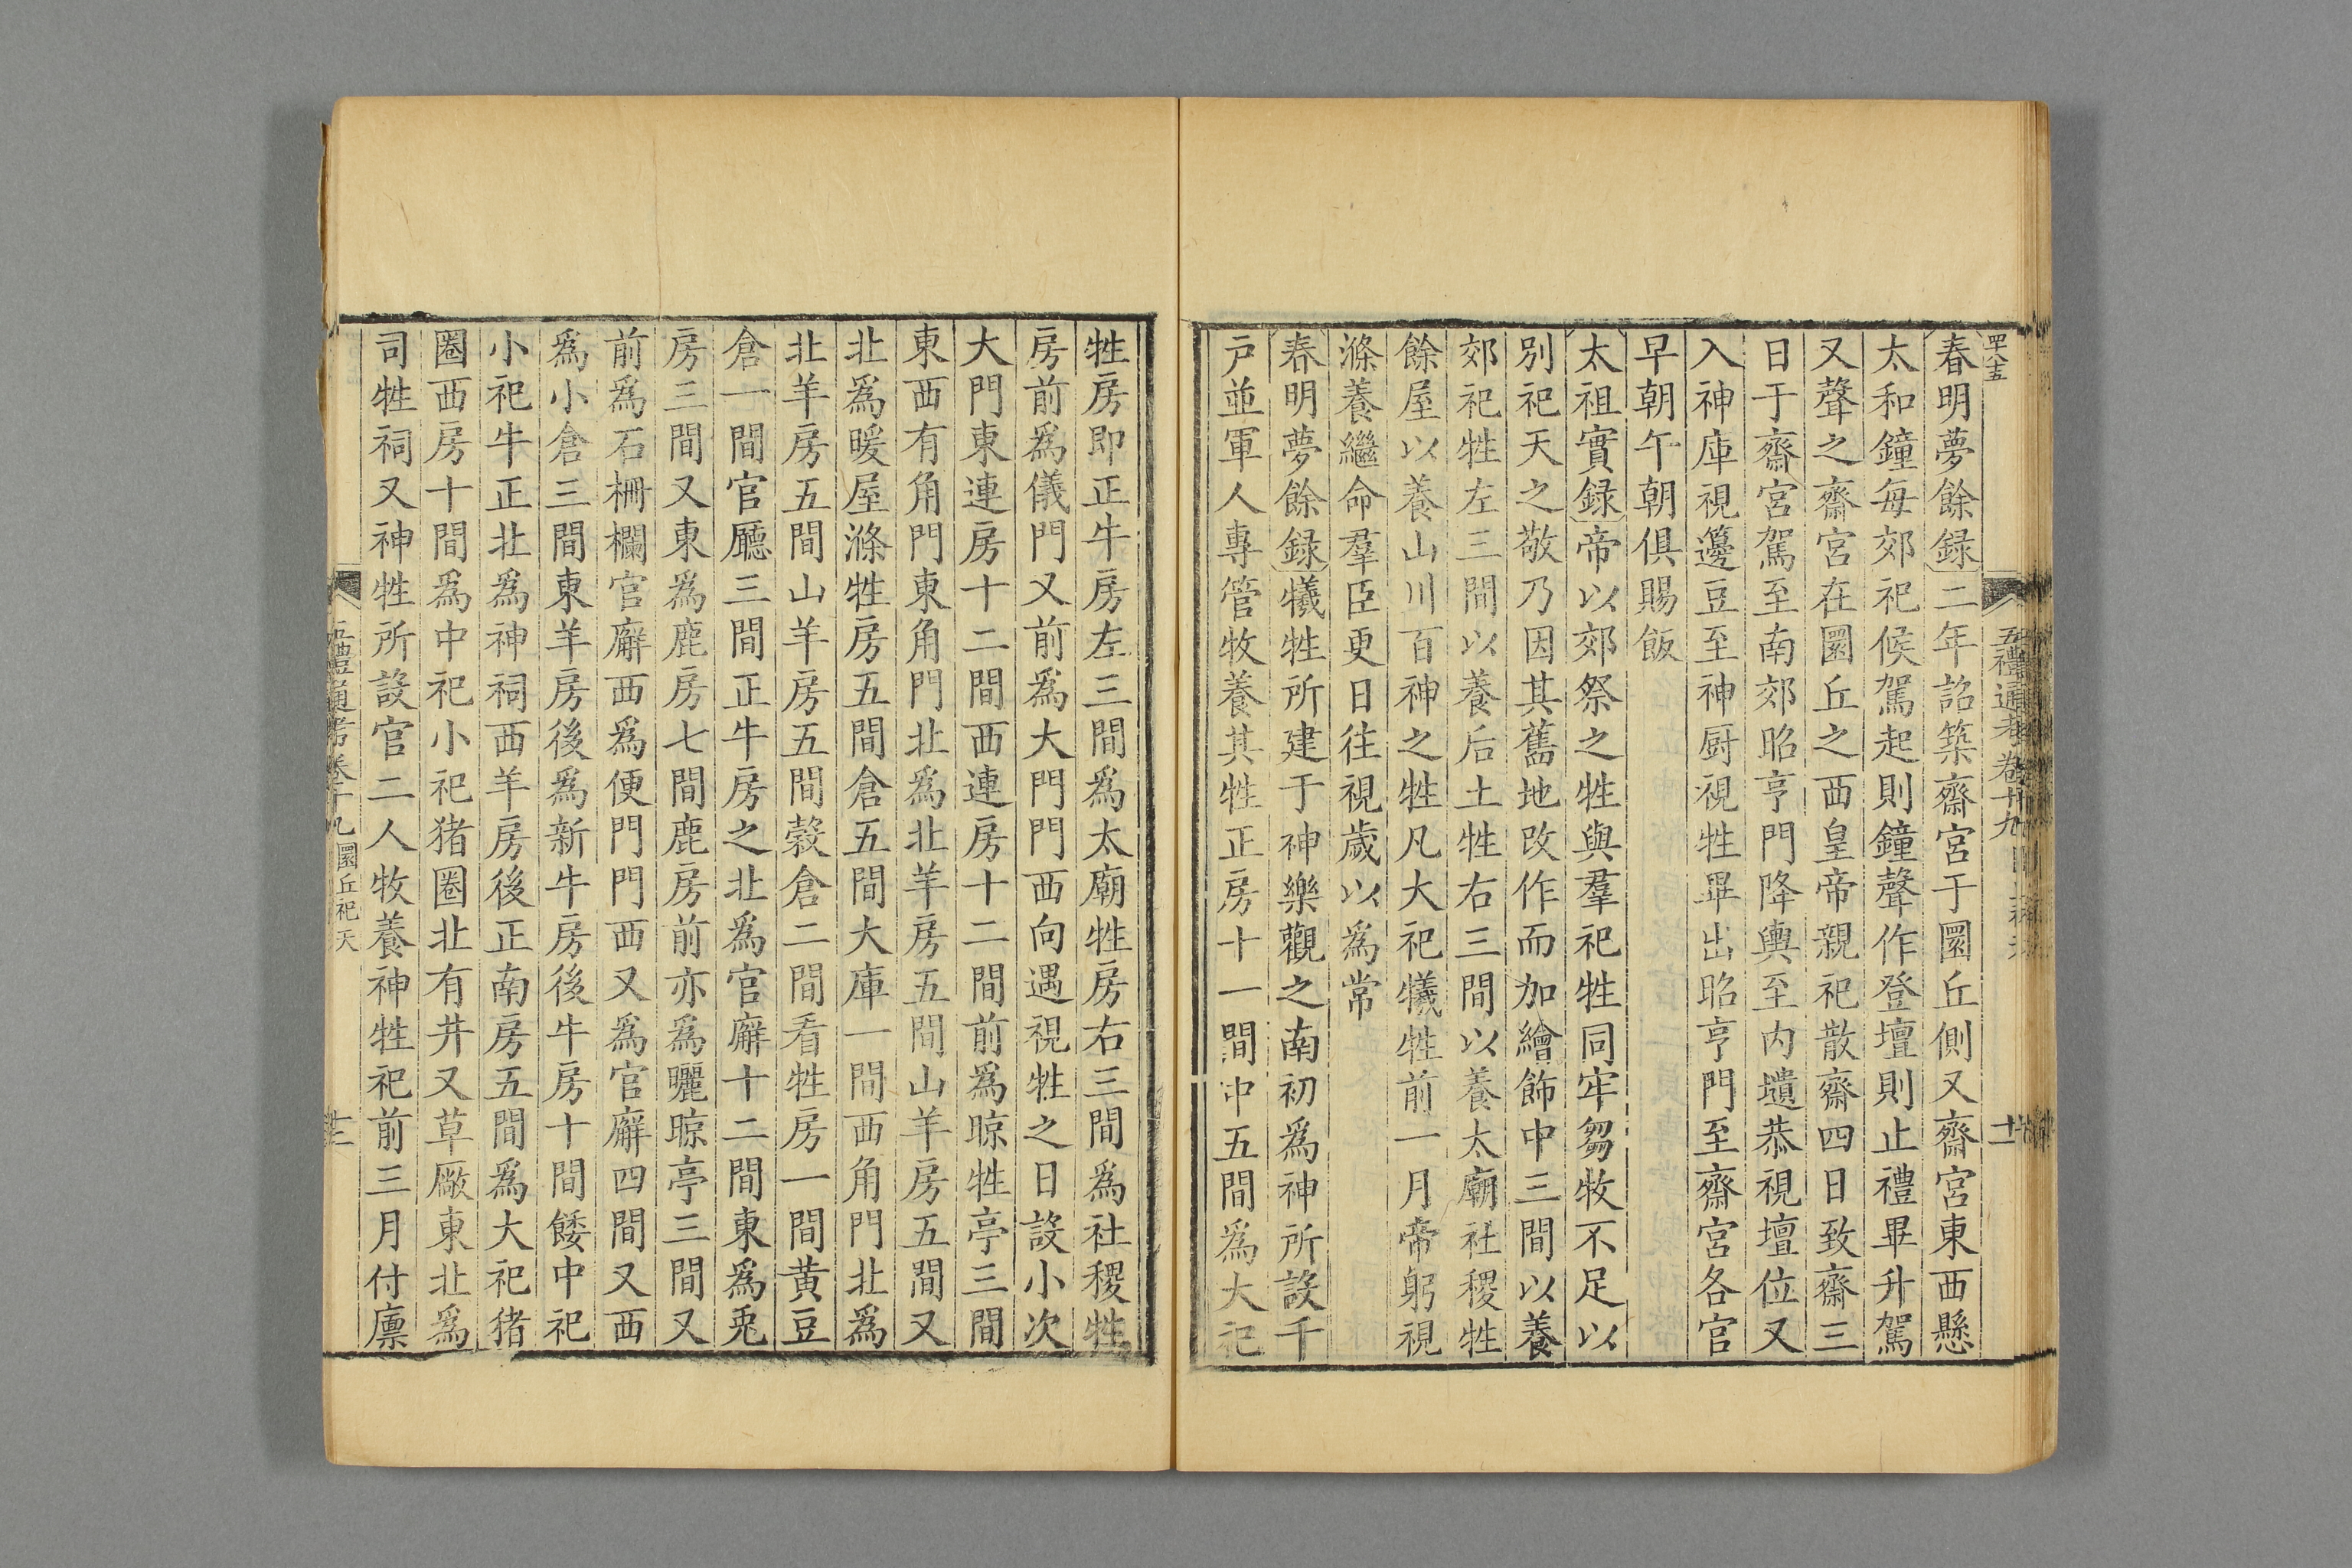 罒八十五
五禮通考卷十九
十
春明夢餘録二年詔築齋宮于圜丘側又齋宮東西懸
太和鐘每郊祀候駕起則鐘聲作登壇則止禮畢升駕
又聲之齋宮在圜丘之西皇帝親祀散齋四日致齋三
日于齋宮駕至南郊昭亨門降輿至内壝恭視壇位又
入神庫視籩豆至神厨視牲畢出昭亨門至齋宮各官
早朝午朝俱賜飯
太祖實録帝以郊祭之牲與羣祀牲同牢芻牧不足以
別祀天之敬乃因其舊地改作而加繪飾中三間以養
郊祀牲左三間以養后土牲右三間以養太廟社稷牲
餘屋以養山川百神之牲凡大祀犧牲前一月帝躬視
滌養繼命羣臣更日往視歲以爲常
春明夢餘録犧牲所建于神樂觀之南初爲神所設千
戶並軍人專管牧養其牲正房十一間中五間爲大祀
牲房即正牛房左三間爲太廟牲房右三間爲社稷牲
房前爲儀門又前爲大門門西向遇視牲之日設小次
大門東連房十二間西連房十二間前爲晾牲亭三間
東西有角門東角門北爲北羊房五間山羊房五間又
北爲暖屋滌牲房五間倉五間大庫一間西角門北爲
北羊房五間山羊房五間穀倉二間看牲房一間黄豆
倉一間官廳三間正牛房之北爲官廨十二間東爲兎
房三間又東爲鹿房七間鹿房前亦爲曬晾亭三間又
前爲石柵欄官廨西爲便門門西又爲官廨四間又西
爲小倉三間東羊房後爲新牛房後牛房十間餧中祀
小祀牛正北爲神祠西羊房後正南房五間爲大祀猪
圈西房十間爲中祀小祀猪圈北有井又草廠東北爲
司牲祠又神牲所設官二人牧養神牲祀前三月付廪
五禮通考卷十九圜丘祀天